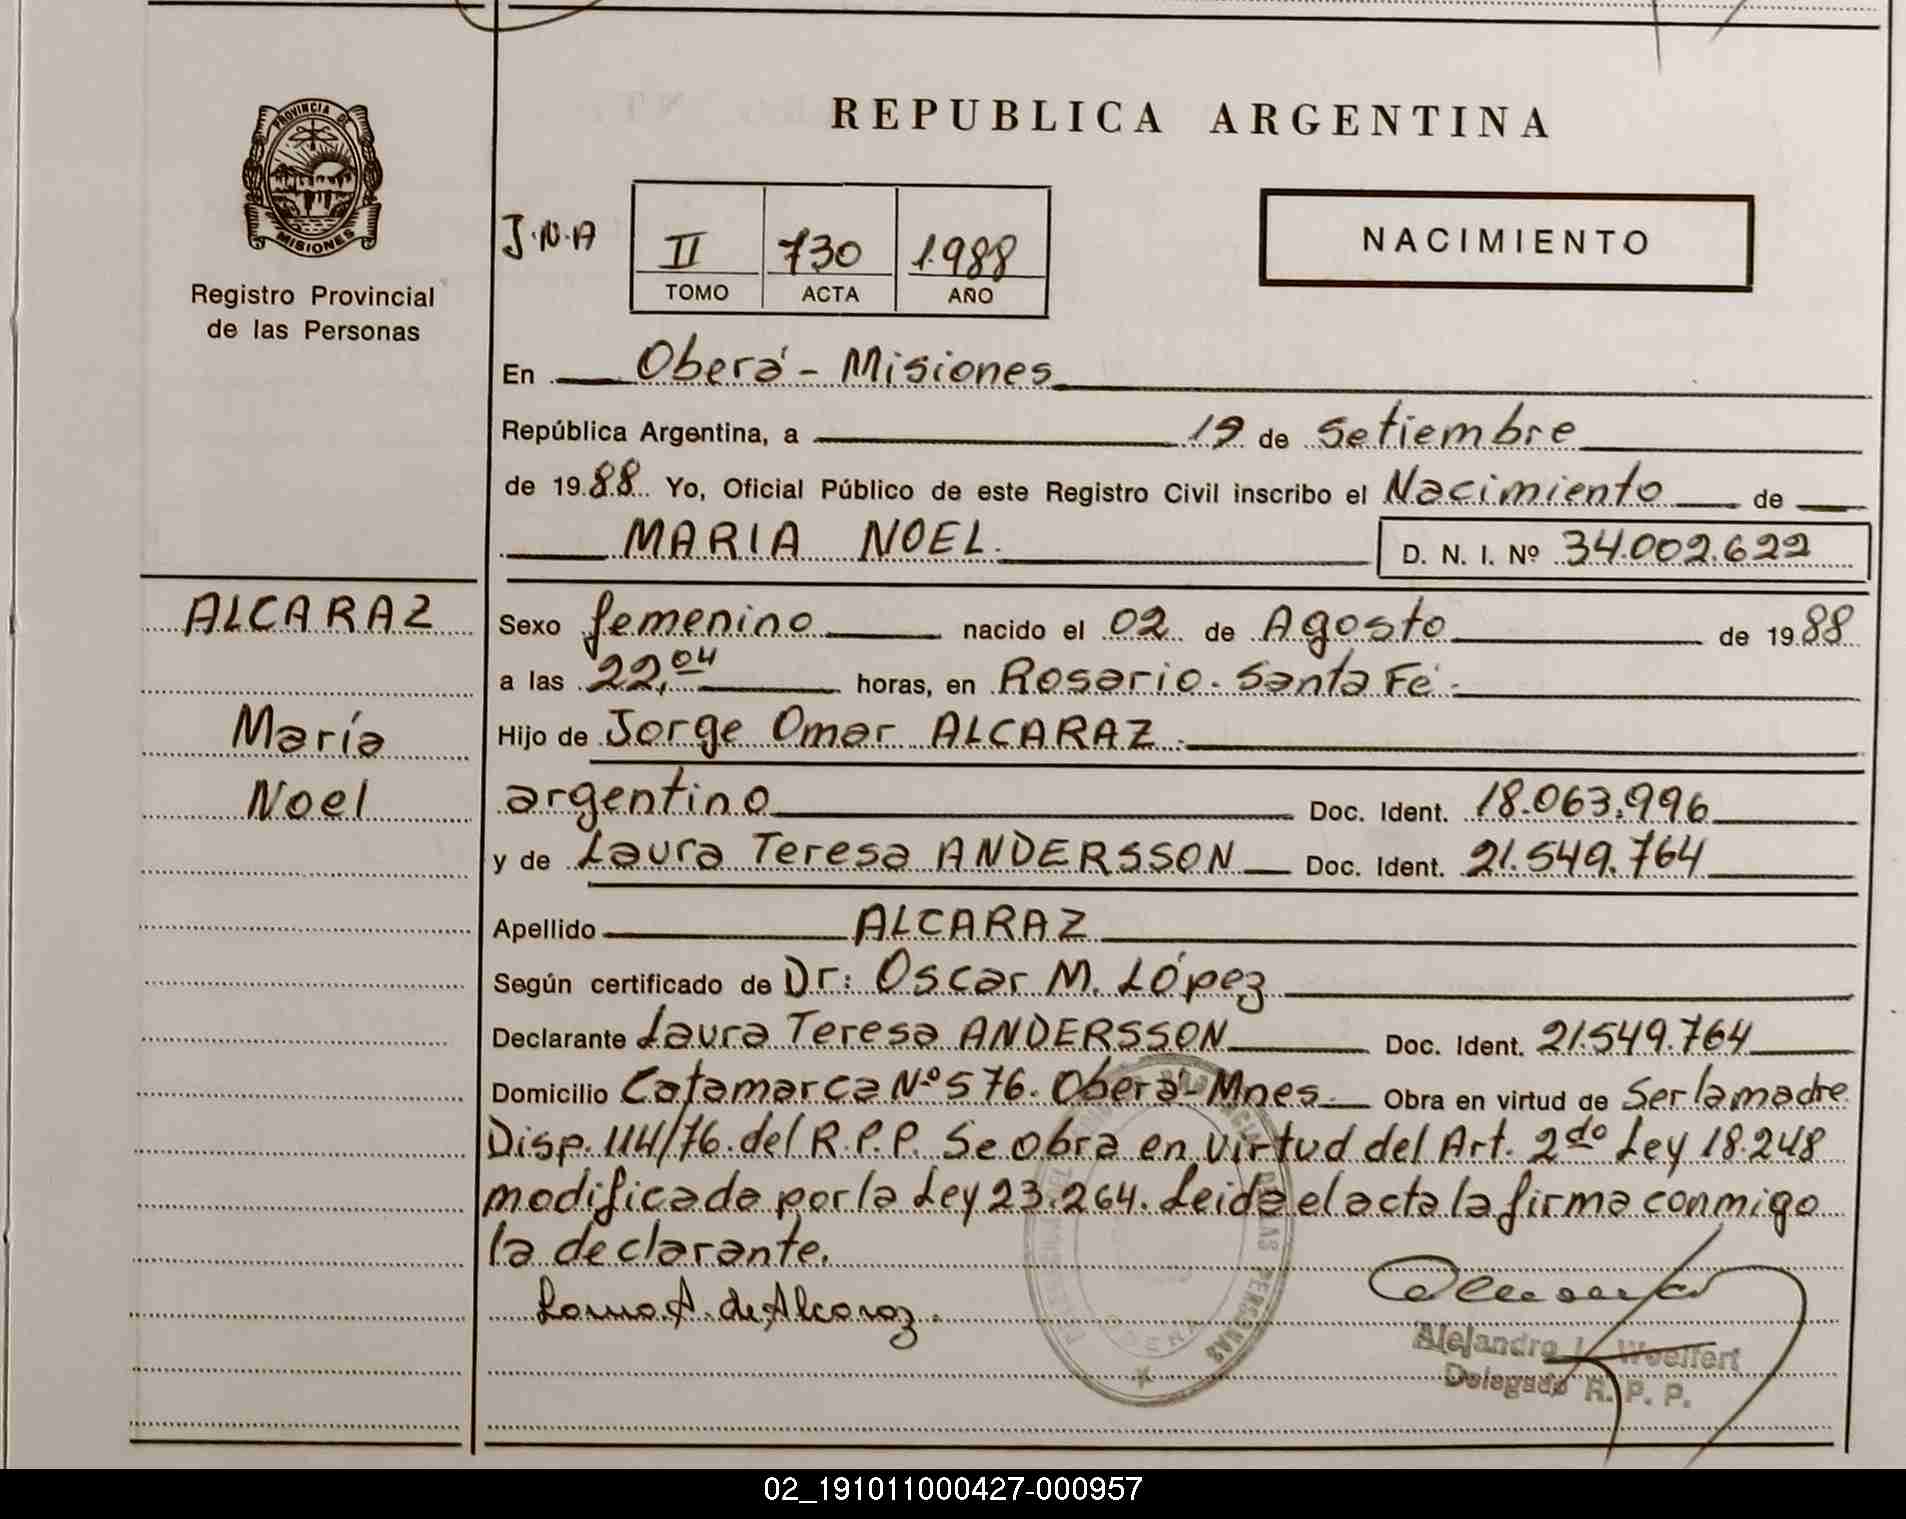 REPUBLICA ARGENTINA
PROVINCIA DE
MISIONES
Registro Provincial
de las Personas
J.N.A
II 730 1.988
TOMO ACTA AÑO
NACIMIENTO
En Oberá - Misiones
República Argentina, a 19 de Setiembre
de 19 88 Yo, Oficial Público de este Registro Civil inscribo el Nacimiento de
MARIA NOEL. D. N. I. Nº 34.002.622
ALCARAZ
María
Noel
Sexo femenino nacido el 02 de Agosto de 19 88
a las 22,04 horas, en Rosario. Santa Fé.
Hijo de Jorge Omar ALCARAZ.
argentino Doc. Ident. 18.063.996
y de Laura Teresa ANDERSSON Doc. Ident. 21.549.764
Apellido ALCARAZ
Según certificado de Dr: Oscar M. López
Declarante Laura Teresa ANDERSSON Doc. Ident. 21.549.764
Domicilio Catamarca Nº 576. Oberá-Mnes. Obra en virtud de Ser la madre
Disp. 114/76. del R.P.P. Se obra en virtud del Art. 2do Ley 18.248
modificada por la Ley 23.264. Leida el acta la firma conmigo
la declarante.
A. de Alcaraz.
Alejandro Woelfert
Delegado R. P. P.
02_191011000427-000957